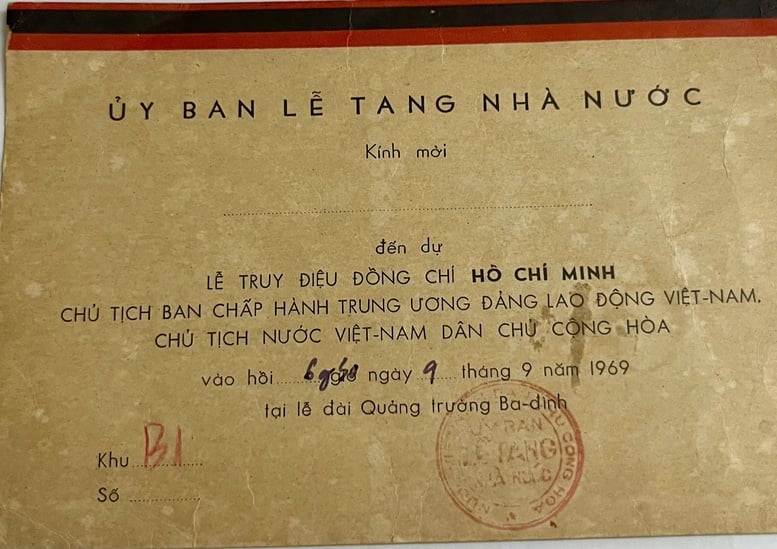 ỦY BAN LỄ TANG NHÀ NƯỚC
Kính mời
đến dự
LỄ TRUY ĐIỆU ĐỒNG CHÍ HỒ CHÍ MINH
CHỦ TỊCH BAN CHẤP HÀNH TRUNG ƯƠNG ĐẢNG LAO ĐỘNG VIỆT-NAM,
CHỦ TỊCH NƯỚC VIỆT-NAM DÂN CHỦ CỘNG HÒA
vào hồi giờ ngày 9 tháng 9 năm 1969
tại lễ đài Quảng trường Ba-đình
Khu B1
Số
ỦY BAN
LỄ TANG
NHÀ NƯỚC
CỘNG HÒA